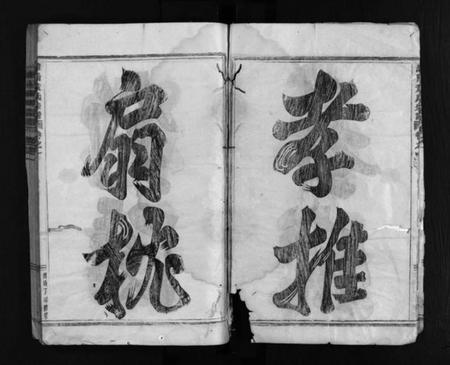 孝推
扇枕